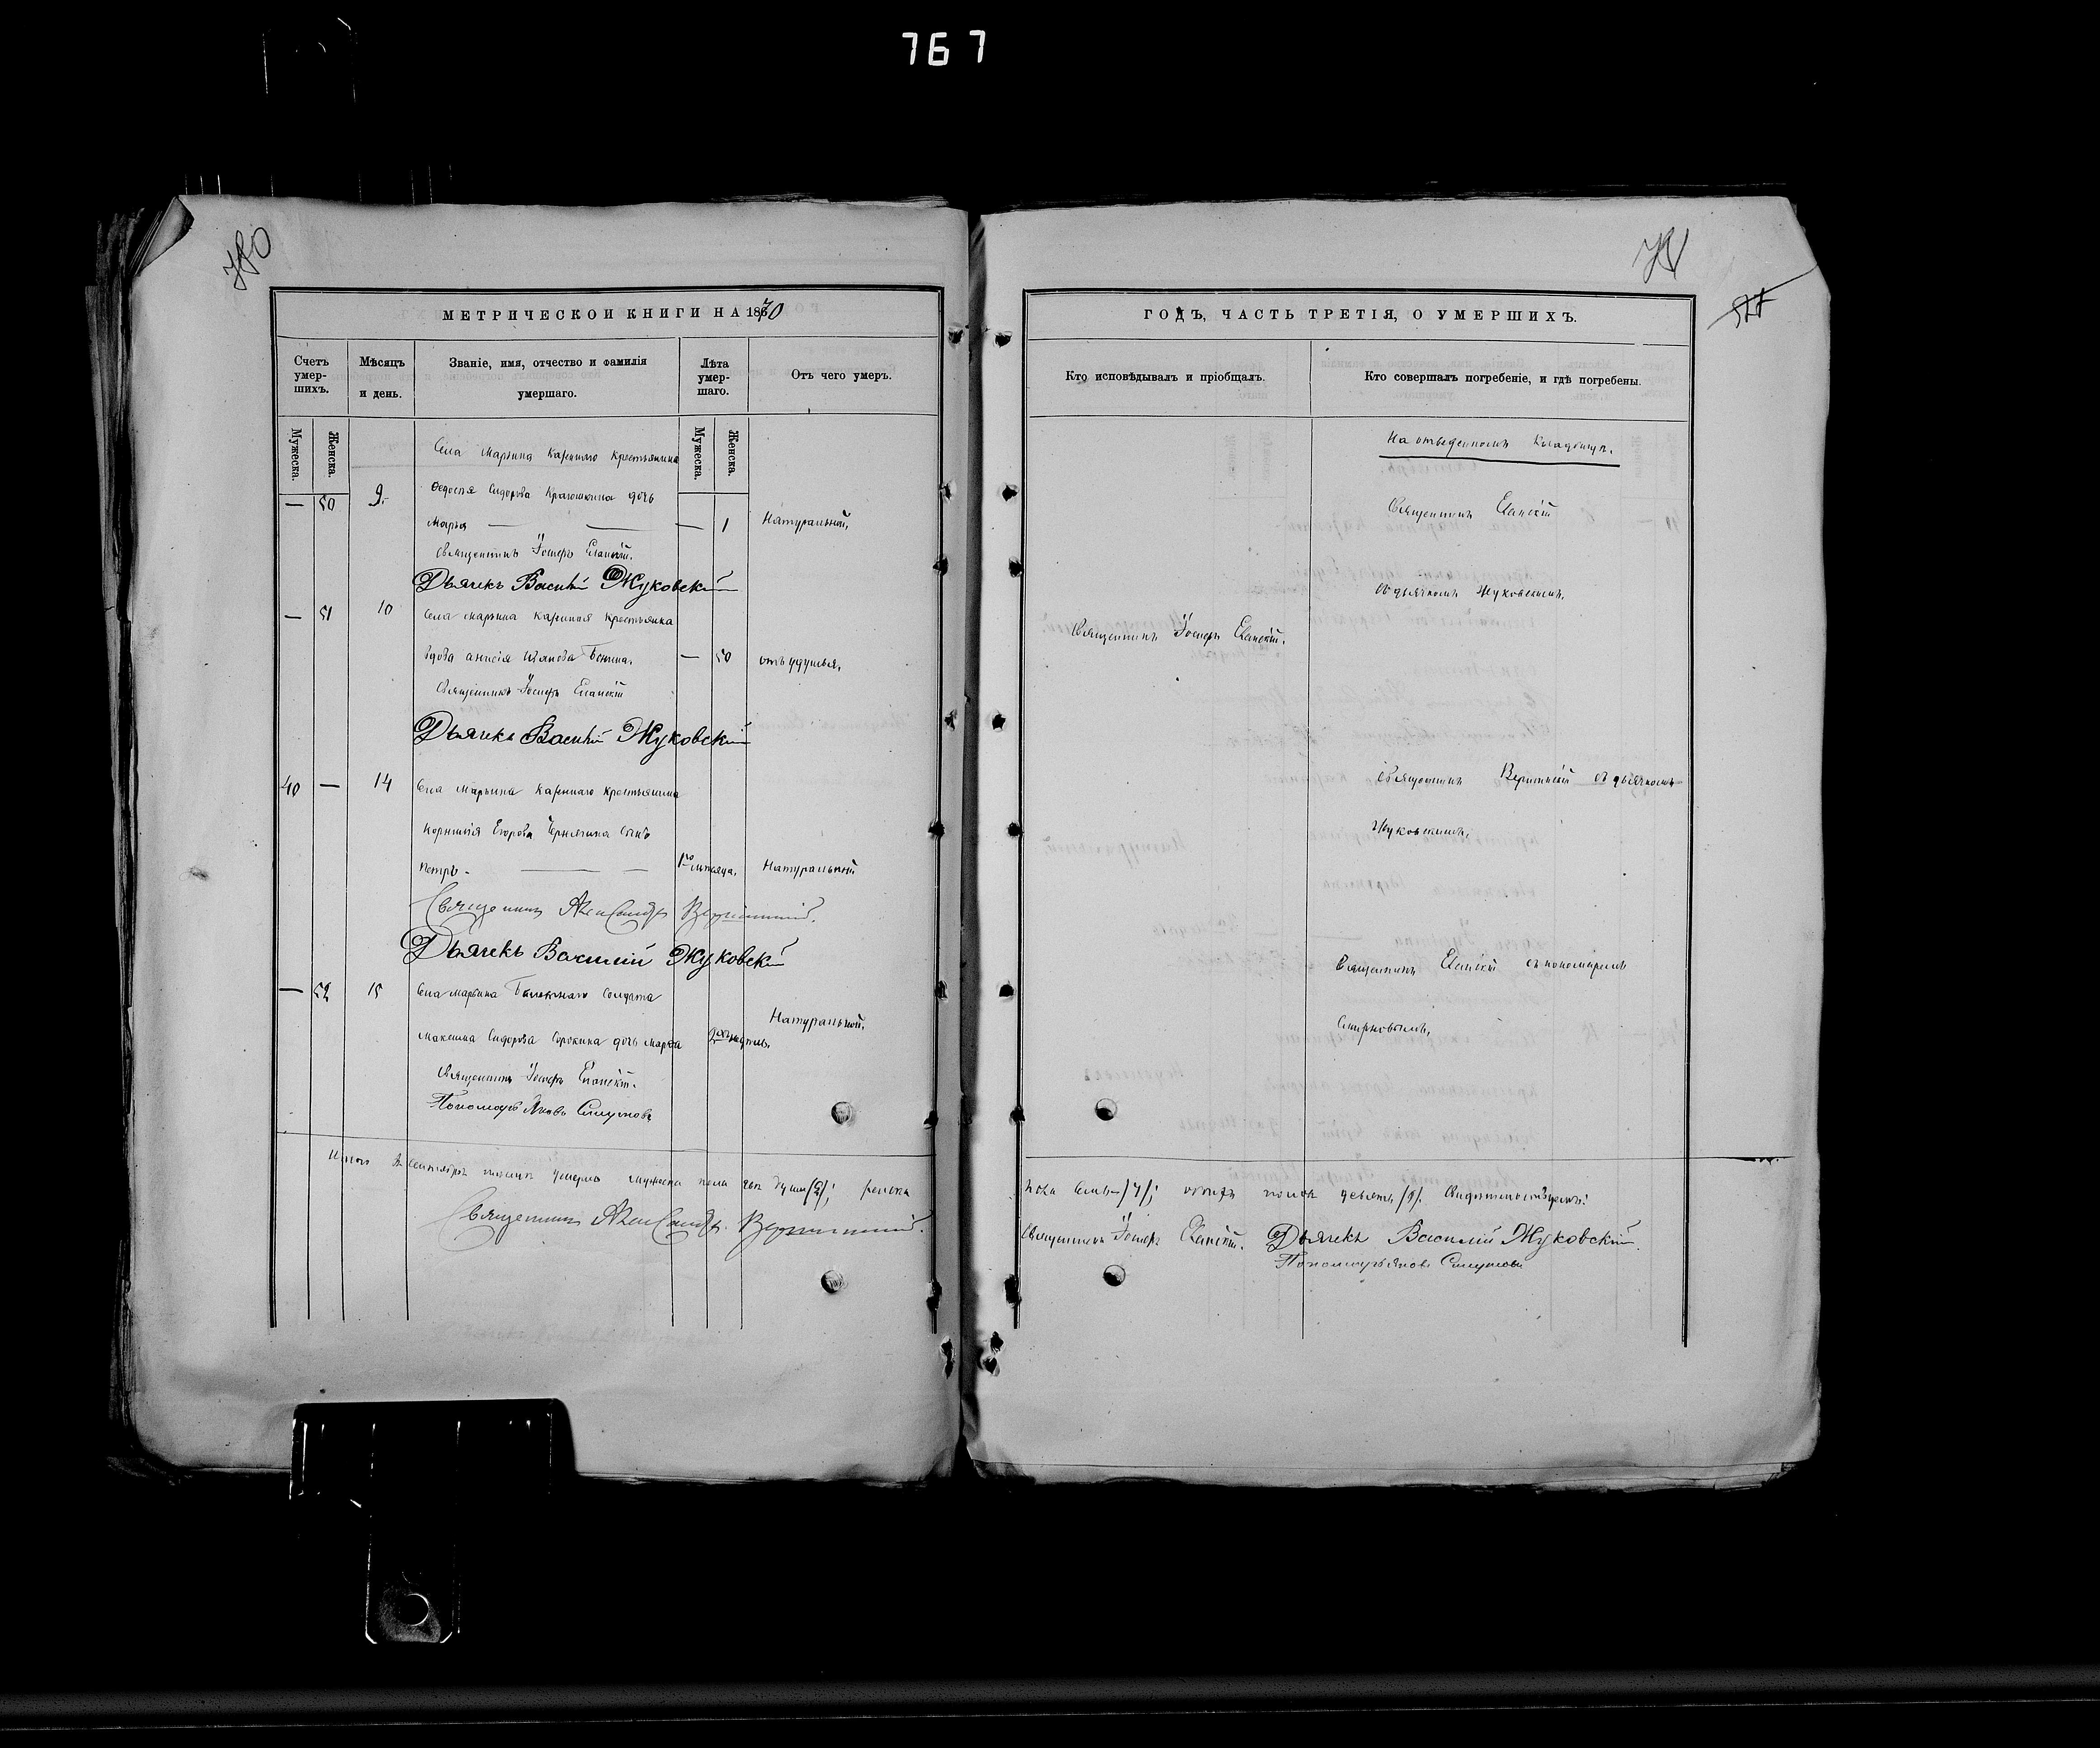 767
780
МЕТРИЧЕСКОЙ КНИГИ НА 1870
Счетъ умер-шихъ.
Мѣсяцъ и день.
Званіе, имя, отчество и фамилія умершаго.
Лѣта умер-шаго.
Отъ чего умеръ.
Мужеска.
Женска.
Мужеска.
Женска.
Села Марьина казеннаго крестьянина
— 50 9. Ѳедосѣя Сидорова дочь
Марья — — — 1 Натуральной.
Священникъ Іосифъ Еланскій.
Дьячекъ Василій Жуковскій
— 51 10 Села Марьина казенная крестьянка
вдова Анисія — 50 отъ удушья.
Священникъ Іосифъ Еланскій
Дьячекъ Василій Жуковскій
40 — 14 Села Марьина казеннаго крестьянина
Корнилія Егорова сынъ
Петръ — — 1го мѣсяца. Натуральной
Священникъ Александръ
Дьячекъ Василій Жуковскій
— 52 15 Села Марьина Билетнаго солдата
Максима Сидорова Сорокина дочь Марѳа 2хъ недѣль. Натуральной.
Священникъ Іосифъ Еланскій.
Пономарь Яковъ Смирновъ
Итого въ Сентябрѣ мѣсяцѣ умерло мужеска пола двѣ души /2/; женска
Священникъ Александръ
ГОДЪ, ЧАСТЬ ТРЕТІЯ, О УМЕРШИХЪ.
Кто исповѣдывалъ и пріобщалъ.
Кто совершалъ погребеніе, и гдѣ погребены.
На отведенномъ кладбищѣ.
Священникъ Еланскій
съ дьячкомъ Жуковскимъ.
Священникъ Іосифъ Еланскій.
Священникъ съ дьячкомъ
Жуковскимъ.
Священникъ Еланскій съ пономаремъ
Смирновымъ.
пола семь /7/; обоего пола девять /9/. Свидѣтельствуемъ:
Священникъ Іосифъ Еланскій. Дьячекъ Василій Жуковскій.
Пономарь Яковъ Смирновъ